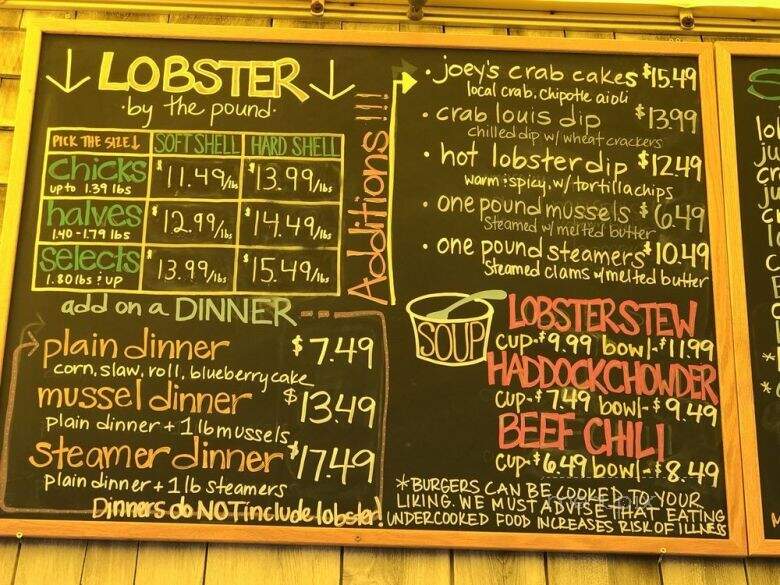 LOBSTER
· by the pound ·
PICK THE SIZE↓ SOFT SHELL HARD SHELL
Chicks
up to 1.39 lbs
$11.49/lb. $13.99/lbs
halves
1.40 - 1.79 lbs
$12.99/lbs $14.49/lbs
Selects
1.80 lbs : up
$13.99/lbs $15.49/lbs
add on a DINNER
plain dinner $7.49
corn, slaw, roll, blueberry cake
mussel dinner $13.49
plain dinner + 1 lb mussels
steamer dinner $17.49
plain dinner + 1 lb steamers
Dinners do NOT include lobster!
Additions!!!
· joey's crab cakes $15.49
local crab. chipotle aioli
· crab louis dip $13.99
chilled dip w/ wheat crackers
· hot lobster dip $12.49
warm : spicy, w/ tortilla chips
· one pound mussels $6.49
Steamed w/ melted butter
· one pound steamers $10.49
Steamed clams w/ melted butter
SOUP
LOBSTER STEW
cup-$9.99 bowl-$11.99
HADDOCK CHOWDER
cup-$7.49 bowl-$9.49
BEEF CHILI
cup-$6.49 bowl-$8.49
*BURGERS CAN BE COOKED TO YOUR
LIKING. WE MUST ADVISE THAT EATING
UNDERCOOKED FOOD INCREASES RISK OF ILLNESS